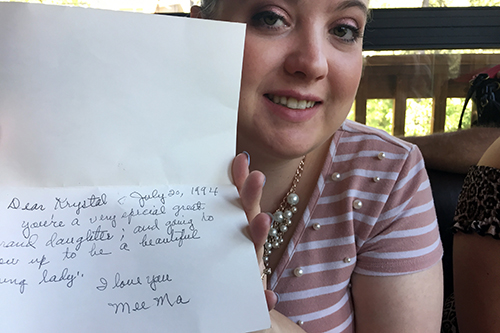 Dear Krystal - July 20, 1994
you're a very special great-
rand daughter, and going to
ow up to be a beautiful
ung lady".
I love you
Mee Ma